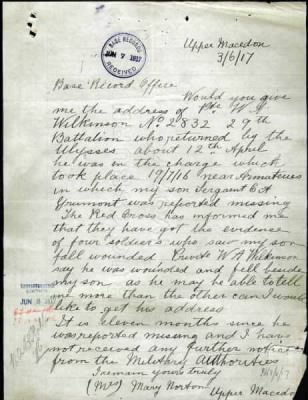 Upper Macedon
3/6/17
BASE RECORDS
JUN 7 1917
RECEIVED
Base Record Office
Would you give
me the address of Pte W A
Wilkinson No 2832 29th
Battalion who returned by the
Ulysses about 12th April
he was in the charge which
took place 19/7/16 near Armatieres
in which my son Sergant C A
was reported missing
The Red Cross has informed me
that they have got the evidence
of four soldiers who saw my son
fall wounded Private W A Wilkinson
say he was wounded and fell beside
my son as he may be able to tell
me more than the other can I would
like to get his address
It is eleven months since he
was reported missing and I have
not received any further notice
from the Military Authorities
I remain yours truly
(Mrs) Mary Norton
Upper Macedon
JUN 8